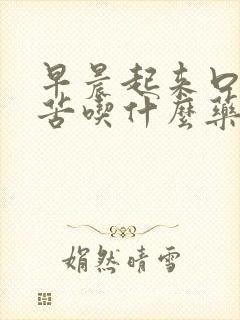 早晨起来口
苦喫什麼藥
娟然晴雪